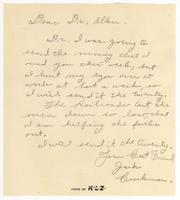 Dear Dr. Allen.
Dr. I was going to
send the money that I
owed you this week, but
I hurt my eye over at
work and lost a week, so
I will send it the twenty.
The Railroader cut the
men down so low, that
I am helping the folks
out.
I will send it the twenty.
Your Best Friend
Jack
HOME OF KOZ